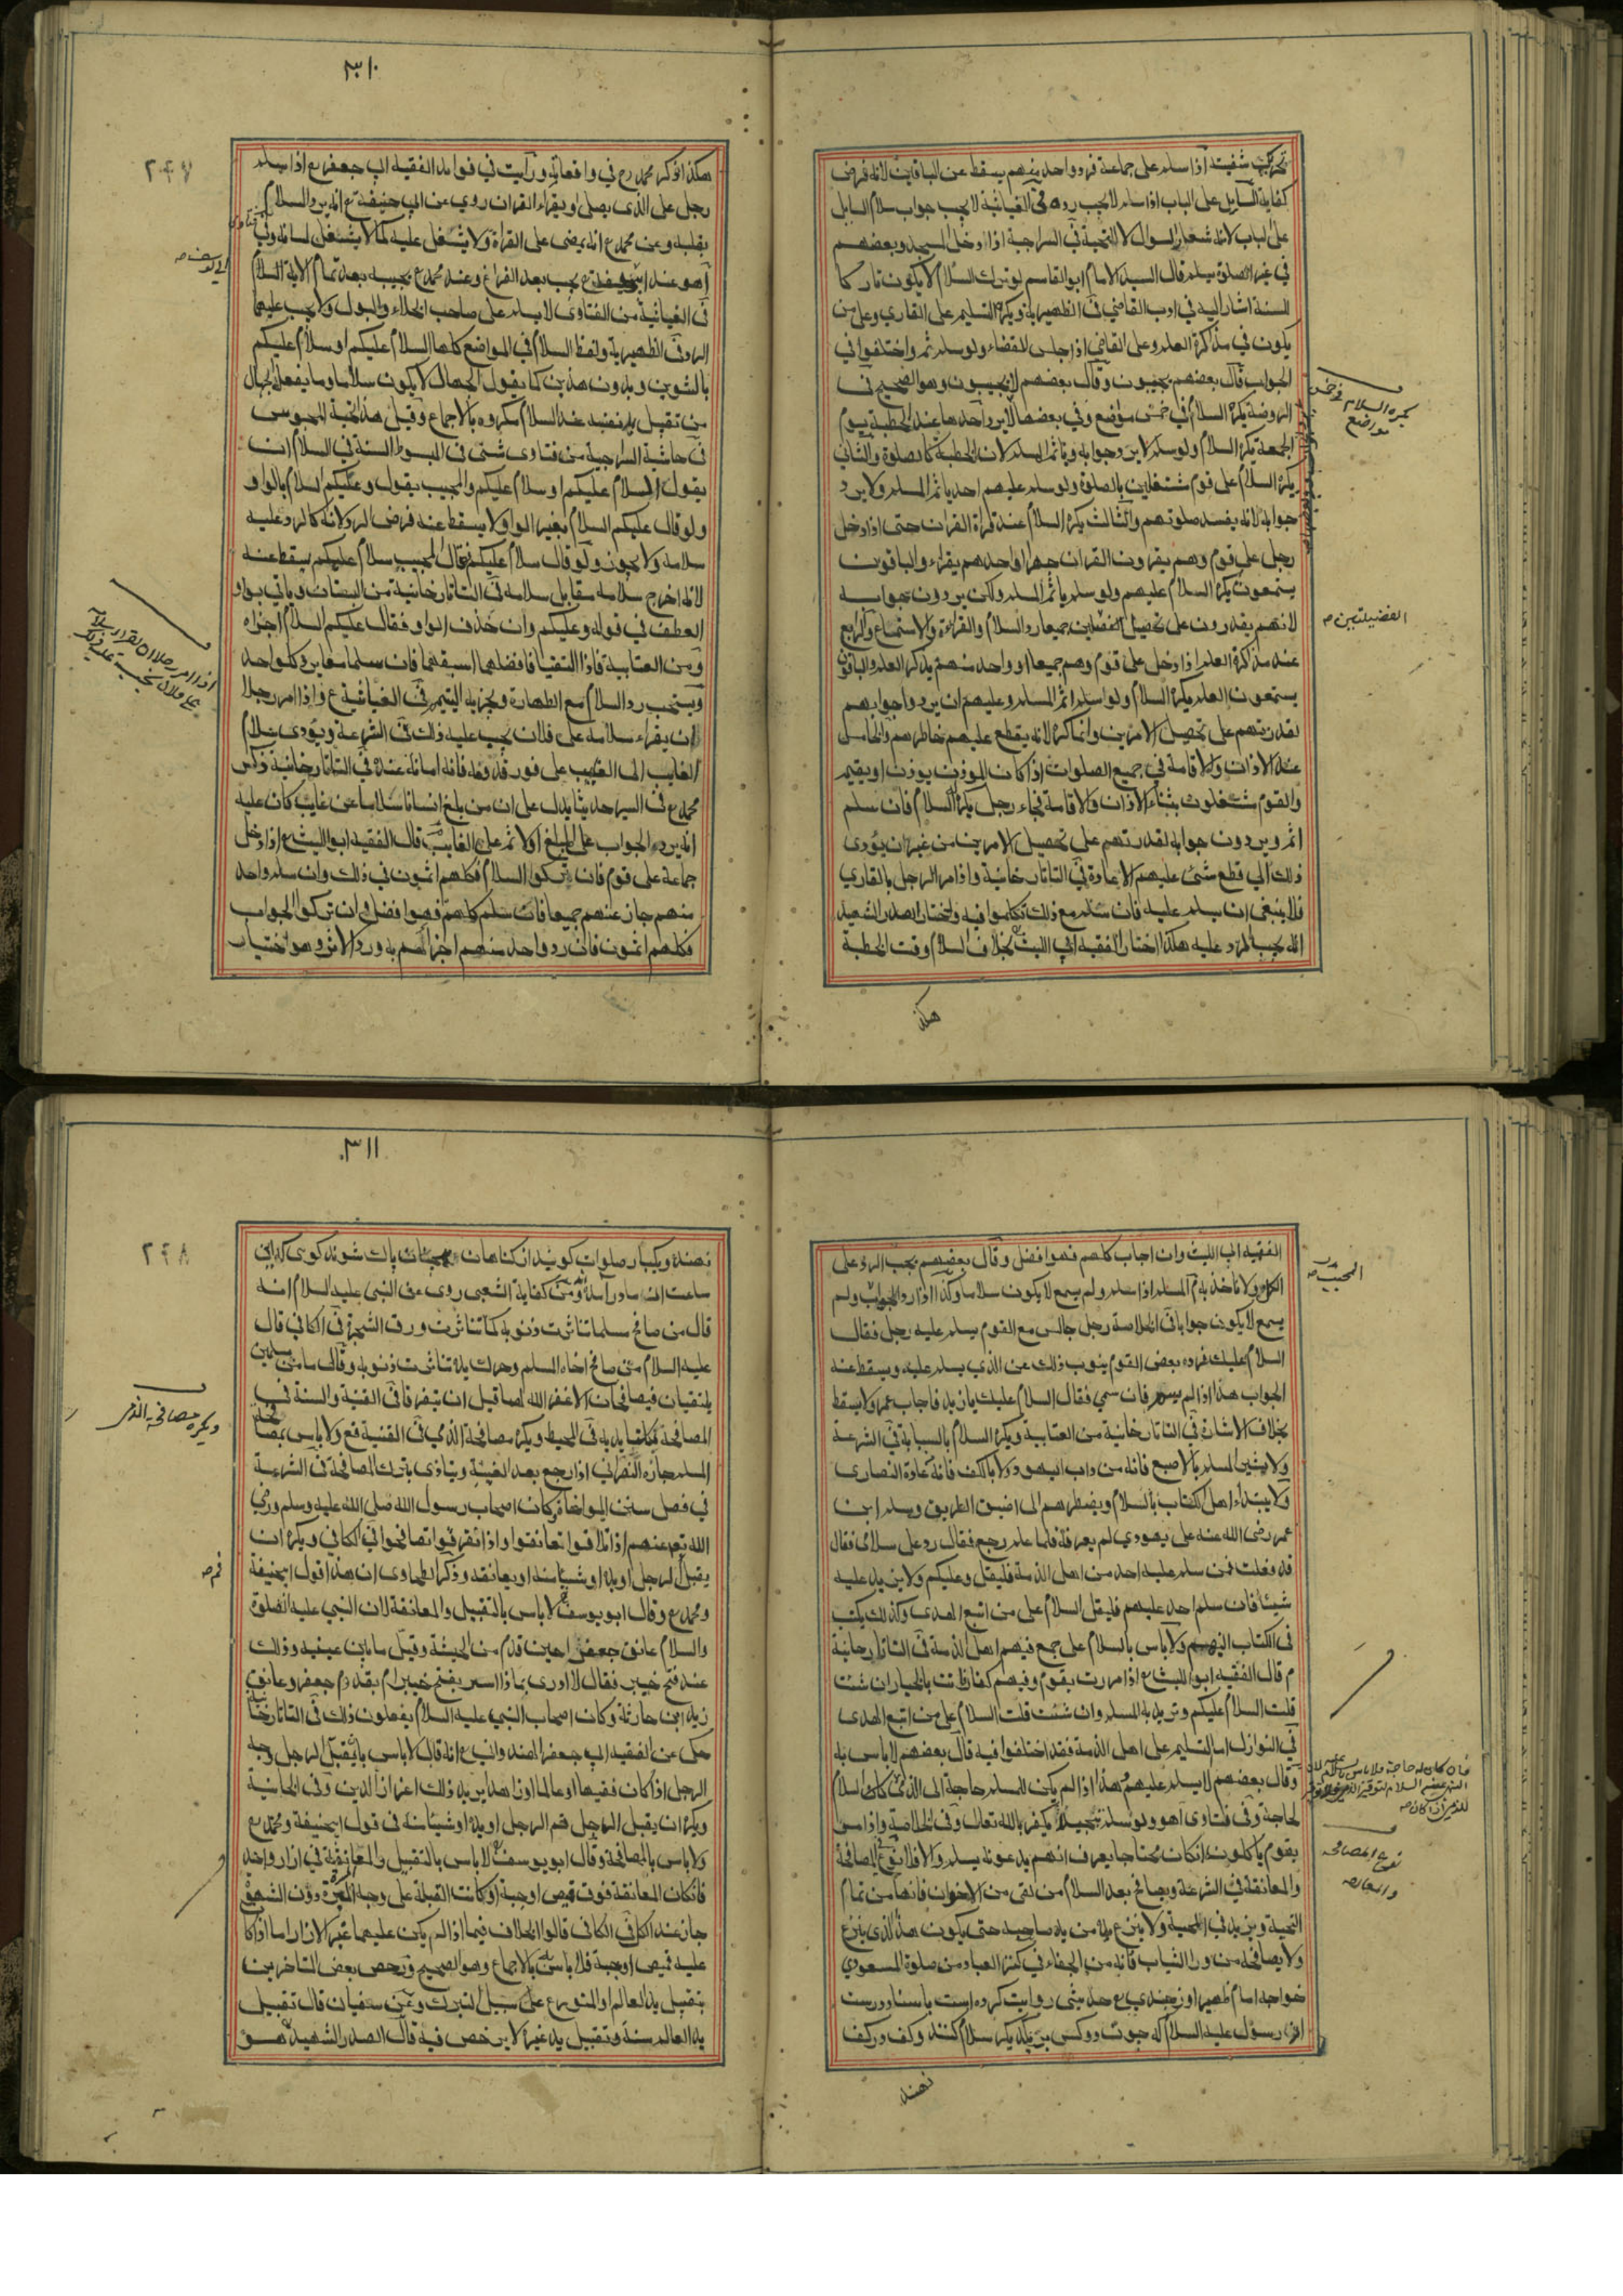 ٣١٠
تحريك شفيته اذا سلم على جماعة فرد واحد منهم يسقط عن الباقين لانه فرض
كفاية السايل على الباب اذا سلم لا يجب رده في الغياثية لا يجب جواب سلام السايل
على الباب لانه شعار السوال لا التحية في السراجية اذا دخل المسجد وبعضهم
في غير الصلوة يسلم قال السيد الامام ابو القاسم لو ترك السلام لا يكون تاركا
للسنة اشار اليه في ادب القاضي في الظهيرية ويكره التسليم على القاري وعلى من
يكون في مذاكرة العلم وعلى القاضي اذا جلس للقضاء ولو سلم ثم واختلفوا في
الجواب قال بعضهم يجيبون وقال بعضهم لا يجيبون وهو الصحيح في
الروضة يكره السلام في خمس مواضع وفي بعضها لا يرد احدها عند الخطبة يوم
الجمعة يكره السلام ولو سلم لا يرد جوابه وياثم المسلم لان الخطبة كالصلوة والثاني
يكره السلام على قوم مشتغلين بالصلوة ولو سلم عليهم احد ياثم المسلم ولا يرد
جوابه لانه يفسد صلوتهم والثالث يكره السلام عند قراة القران حتى اذا دخل
رجل على قوم وهم يقرون القران جهرا واحدهم يقراء والباقون
يستمعون يكره السلام عليهم ولو سلم ياثم المسلم ولكن يردون جوابه
لانهم يقدرون على تحصيل الفضلين جميعا رد السلام والقراءة والاستماع والرابع
عند مذاكرة العلم اذا دخل على قوم وهم جميعا او واحد منهم يذكر العلم والباقون
يستمعون العلم يكره السلام ولو سلم اثم المسلم وعليهم ان يردوا جوابهم
لقدرتهم على تحصيل الامرين وانما كره لانه يقطع عليهم خاطرهم والخامس
عند الاذان والاقامة في جميع الصلوات اذا كان الموذن يوذن او يقيم
والقوم مشتغلون بثناء الاذان والاقامة فجاء رجل يكره السلام فان سلم
اثم ويردون جوابه لقدرتهم على تحصيل الامرين من غير ان يؤدى
ذلك الي قطع شئ عليهم الاعادة في التاتارخانية واذا مر الرجل بالقاري
فلا ينبغى ان يسلم عليه فان سلم مع ذلك تكلموا فيه والمختار الصدر الشهيد
انه يجب الرد عليه هكذا اختار الفقيه ابي الليث بخلاف السلام وقت الخطبة
هكذ
يكره السلام في خمس
مواضع
الفضيلتين صح
٢٤٧
هكذا ذكر محمد رح في واقعاته ورايت في فوايد الفقيه ابي جعفر ع اذا سلم
رجل على الذى يصلى او يقراء القران روي عن ابي حنيفة ع انه يرد السلام
بقلبه وعن محمد ع انه يمضى على القراة ولا يشتغل عليه كما لا يشتغل لسانه
في الغياثية من الفتاوى لا يسلم على صاحب الخلاء والبول ولا يجب عليهما
الرد في الظهيرية ولفظ السلام في المواضع كلها السلام عليكم او سلام عليكم
بالتنوين وبدون هذين كما يقول الجهال لا يكون سلاما وما يفعله الجهال
من تقبيل يد نفسه عند السلام مكروه بالاجماع وقيل هذا تحية المجوس
في حاشية السراجية من فتاوى شتى في المبسوط السنة في السلام ان
يقول السلام عليكم او سلام عليكم والمجيب يقول وعليكم السلام بالواو
ولو قال عليكم السلام بغير الواو لا يسقط عنه فرض الرد لانه كالرد عليه
سلامه ولا يجوز ولو قال سلام عليكم فقال المجيب سلام عليكم يسقط عنه
لانه اخرج سلامه مقابل سلامه في التاتارخانية من البستان وياتي بواو
العطف في قوله وعليكم وان حذف الواو فقال عليكم السلام اجزاه
ومن العتابية فاذا التقيا فافضلهما اسبقهما فان سلما معا يرد كل واحد
ويستحب رد السلام مع الطهارة ويجزيه التيمم في الغياثية ع واذا امر رجلا
ان يقراء سلامه على فلان يجب عليه ذلك في الشرعة ويؤدى سلام
الغايب الى الغيب على فور قدومه فانه امانة عنده في التاتارخانية ذكر
محمد ع في السير حديثا يدل على ان من بلغ انسانا سلاما عن غايب كان عليه
ان يرد الجواب على المبلغ اولا ثم على الغايب قال الفقيه ابو الليث ع اذا دخل
جماعة على قوم فان تركوا السلام فكلهم اثمون في ذلك وان سلم واحد
منهم جاز عنهم جميعا فان سلم كلهم فهو افضل فان تركوا الجواب
فكلهم اثمون فان رد واحد منهم اجزاهم به ورد الاثر وهو اختيار
٣١١
الفقيه ابي الليث وان اجاب كلهم فهو افضل وقال بعضهم يجب الرد على
الكل ولا ناخذ به م المسلم اذا سلم ولم يسمع لا يكون سلاما وكذا اذا رد الجواب ولم
يسمع لا يكون جوابا في الخلاصة رجل جالس مع القوم يسلم عليه رجل فقال
السلام عليك فرده بعض القوم ينوب ذلك عن الذي يسلم عليه ويسقط عنه
الجواب هذا اذا لم يسم فان سمي فقال السلام عليك يا زيد فاجاب عمر ولا يسقط
بخلاف الاشارة في التاتارخانية من العتابية ويكره السلام بالسبابة في الشرعة
ولا يشير المسلم بالاصبع فانه من داب اليهود ولا بالكف فانه عادة النصارى
ولا يبتداء اهل الكتاب بالسلام ويضطرهم الى اضيق الطريق وسلم ابن
عمر رضى الله عنه على يهودي لم يعرفه فلما علم رجع فقال رد على سلامى فقال
قد فعلت فمن سلم عليه احد من اهل الذمة فليقل وعليكم ولا يزيد عليه
شيئا فان سلم احد عليهم فليقل السلام على من اتبع الهدى وكذلك يكتب
فى الكتاب اليهم ولا باس بالسلام على جمع فيهم اهل الذمة في التاتارخانية
م قال الفقيه ابو الليث ع اذا مررت بقوم وفيهم كفار فانت بالخيار ان شئت
قلت السلام عليكم وتريد به المسلم وان شئت قلت السلام على من اتبع الهدى
في النوازل اما التسليم على اهل الذمة فقد اختلفوا فيه قال بعضهم لا باس به
وقال بعضهم لا يسلم عليهم هذا اذا لم يكن للمسلم حاجة الى الذمي
لحاجة وفى فتاوى آهو ولو سلم تبجيلا يكفر بالله تعالى وفي الخلاصة واذا مر
بقوم ياكلون ان كان محتاجا يعرف انهم يدعونه يسلم والا فلا نوع في المصافحة
والمعانقة في الشرعة ويصافح بعد السلام من لقى من الاخوان فانها من تمام
التحية ويزيد في المحبة ولا ينزع يده من يد صاحبه حتى يكون هذا الذي ينزع
ولا يصافحه من ورا الثياب فانه من الجفاء في كنز العباد من صلوة المسعودي
خواجه امام ظهير اوزجندي ع حديثى روايت كرده است باسناد درست
از رسول عليه السلام كه چون دو كس بر يكديكر سلام كنند وكف در كف
نهند
المجيب صح
٢٤٨
نهند ويكبار صلوات كويند از كناهان بچنان پاك شوند كوى كه اين
ساعت از مادر آمده ومن كفاية الشعبى روى عن النبى عليه السلام انه
قال من صافح مسلما تناثرت ذنوبه كما تناثرت ورق الشجرة في الكافي قال
عليه السلام من صافح اخاه المسلم وحرك يده تناثرت ذنوبه وقال ما من مسلمين
يلتقيان فيصافحان الا غفر الله لهما قبل ان يتفرقا في القنية والسنة في
المصافحة بكلتا يديه في المحيط ويكره مصافحة الذمي في القنية فع ولا باس بمصافحة
المسلم جاره النصراني اذا رجع بعد الغيبة ويتاذى بترك المصافحة في الشرعة
في فصل سنن المواخاة وكان اصحاب رسول الله صلى الله عليه وسلم ورضي
الله تع عنهم اذا تلاقوا تعانقوا واذا تفرقوا تصافحوا في الكافي ويكره ان
يقبل الرجل او يده او شيئا منه او يعانقه وذكر الطحاوى ان هذا قول ابيحنيفة
ومحمد ع وقال ابو يوسف ع لا باس بالتقبيل والمعانقة لان النبي عليه الصلوة
والسلام عانق جعفر احين قدم من الحبشة وقبل ما بين عينيه وذلك
عند فتح خيبر فقال لا ادرى بماذا اسر بفتح خيبر ام بقدوم جعفر وعانق
زيد ابن حارثة وكان اصحاب النبي عليه السلام يفعلون ذلك في التاتارخانية
حكى عن الفقيه ابي جعفر الهندواني ع انه قال لا باس بان يقبل الرجل وجه
الرجل اذا كان فقيها او عالما او زاهدا يريد ذلك اعزاز الدين وفي الخانية
ويكره ان يقبل الرجل فم الرجل او يده او شيئا منه في قول ابيحنيفة ومحمد ع
ولا باس بالمصافحة وقال ابو يوسف ع لا باس بالتقبيل والمعانقة في ازار واحد
فان كان المعانقة فوق قميص او جبة او كانت القبلة على وجه المبرة دون الشهوة
جاز عند الكل في الكافى قالوا الخلاف فيما اذا لم يكن عليهما غير الازار اما اذا كا
عليه قميص او جبة فلا باس به بالاجماع وهو الصحيح ورخص بعض المتاخرين
بتقبيل يد العالم او المتورع على سبيل التبرك وعن سفيان قال تقبيل
يد العالم سنة وتقبيل يد غيره لا يرخص فيه قال الصدر الشهيد هو
ويكره مصافحة الذمى
فم صح